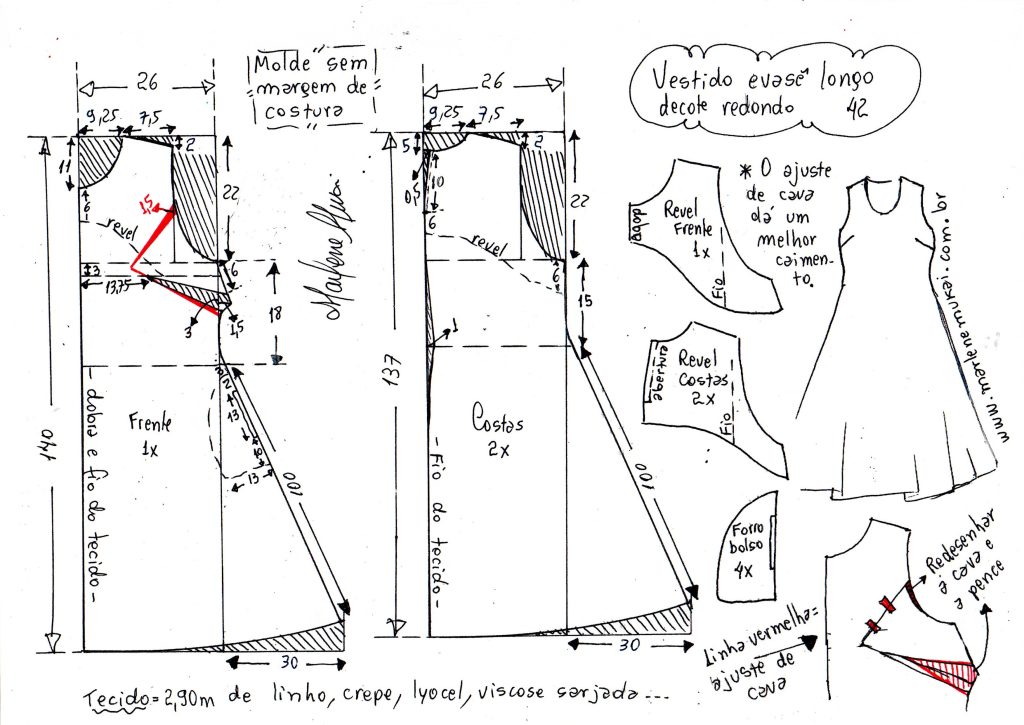 Molde sem
margem de
costura
Vestido evasê longo
decote redondo 42
26
9,25 7,5
2
11
6
revel
1,5
22
3
13,75
6
3
1,5
18
140
Frente
1x
- dobra e fio do tecido -
2
13
10
13
100
30
26
9,25 7,5
5
2
10
0,5
6
revel
22
6
15
1
137
Costas
2x
- Fio do tecido -
100
30
Revel
Frente
1x
dobra
Fio
* O ajuste
de cava
dá um
melhor
caimen-
to.
Revel
Costas
2x
abertura
Fio
www.marlenemukai.com.br
Forro
bolso
4x
Linha vermelha=
ajuste de
cava
Redesenhar
a cava e
a pence
Tecido=2,90m de linho, crepe, lyocel, viscose sarjada...